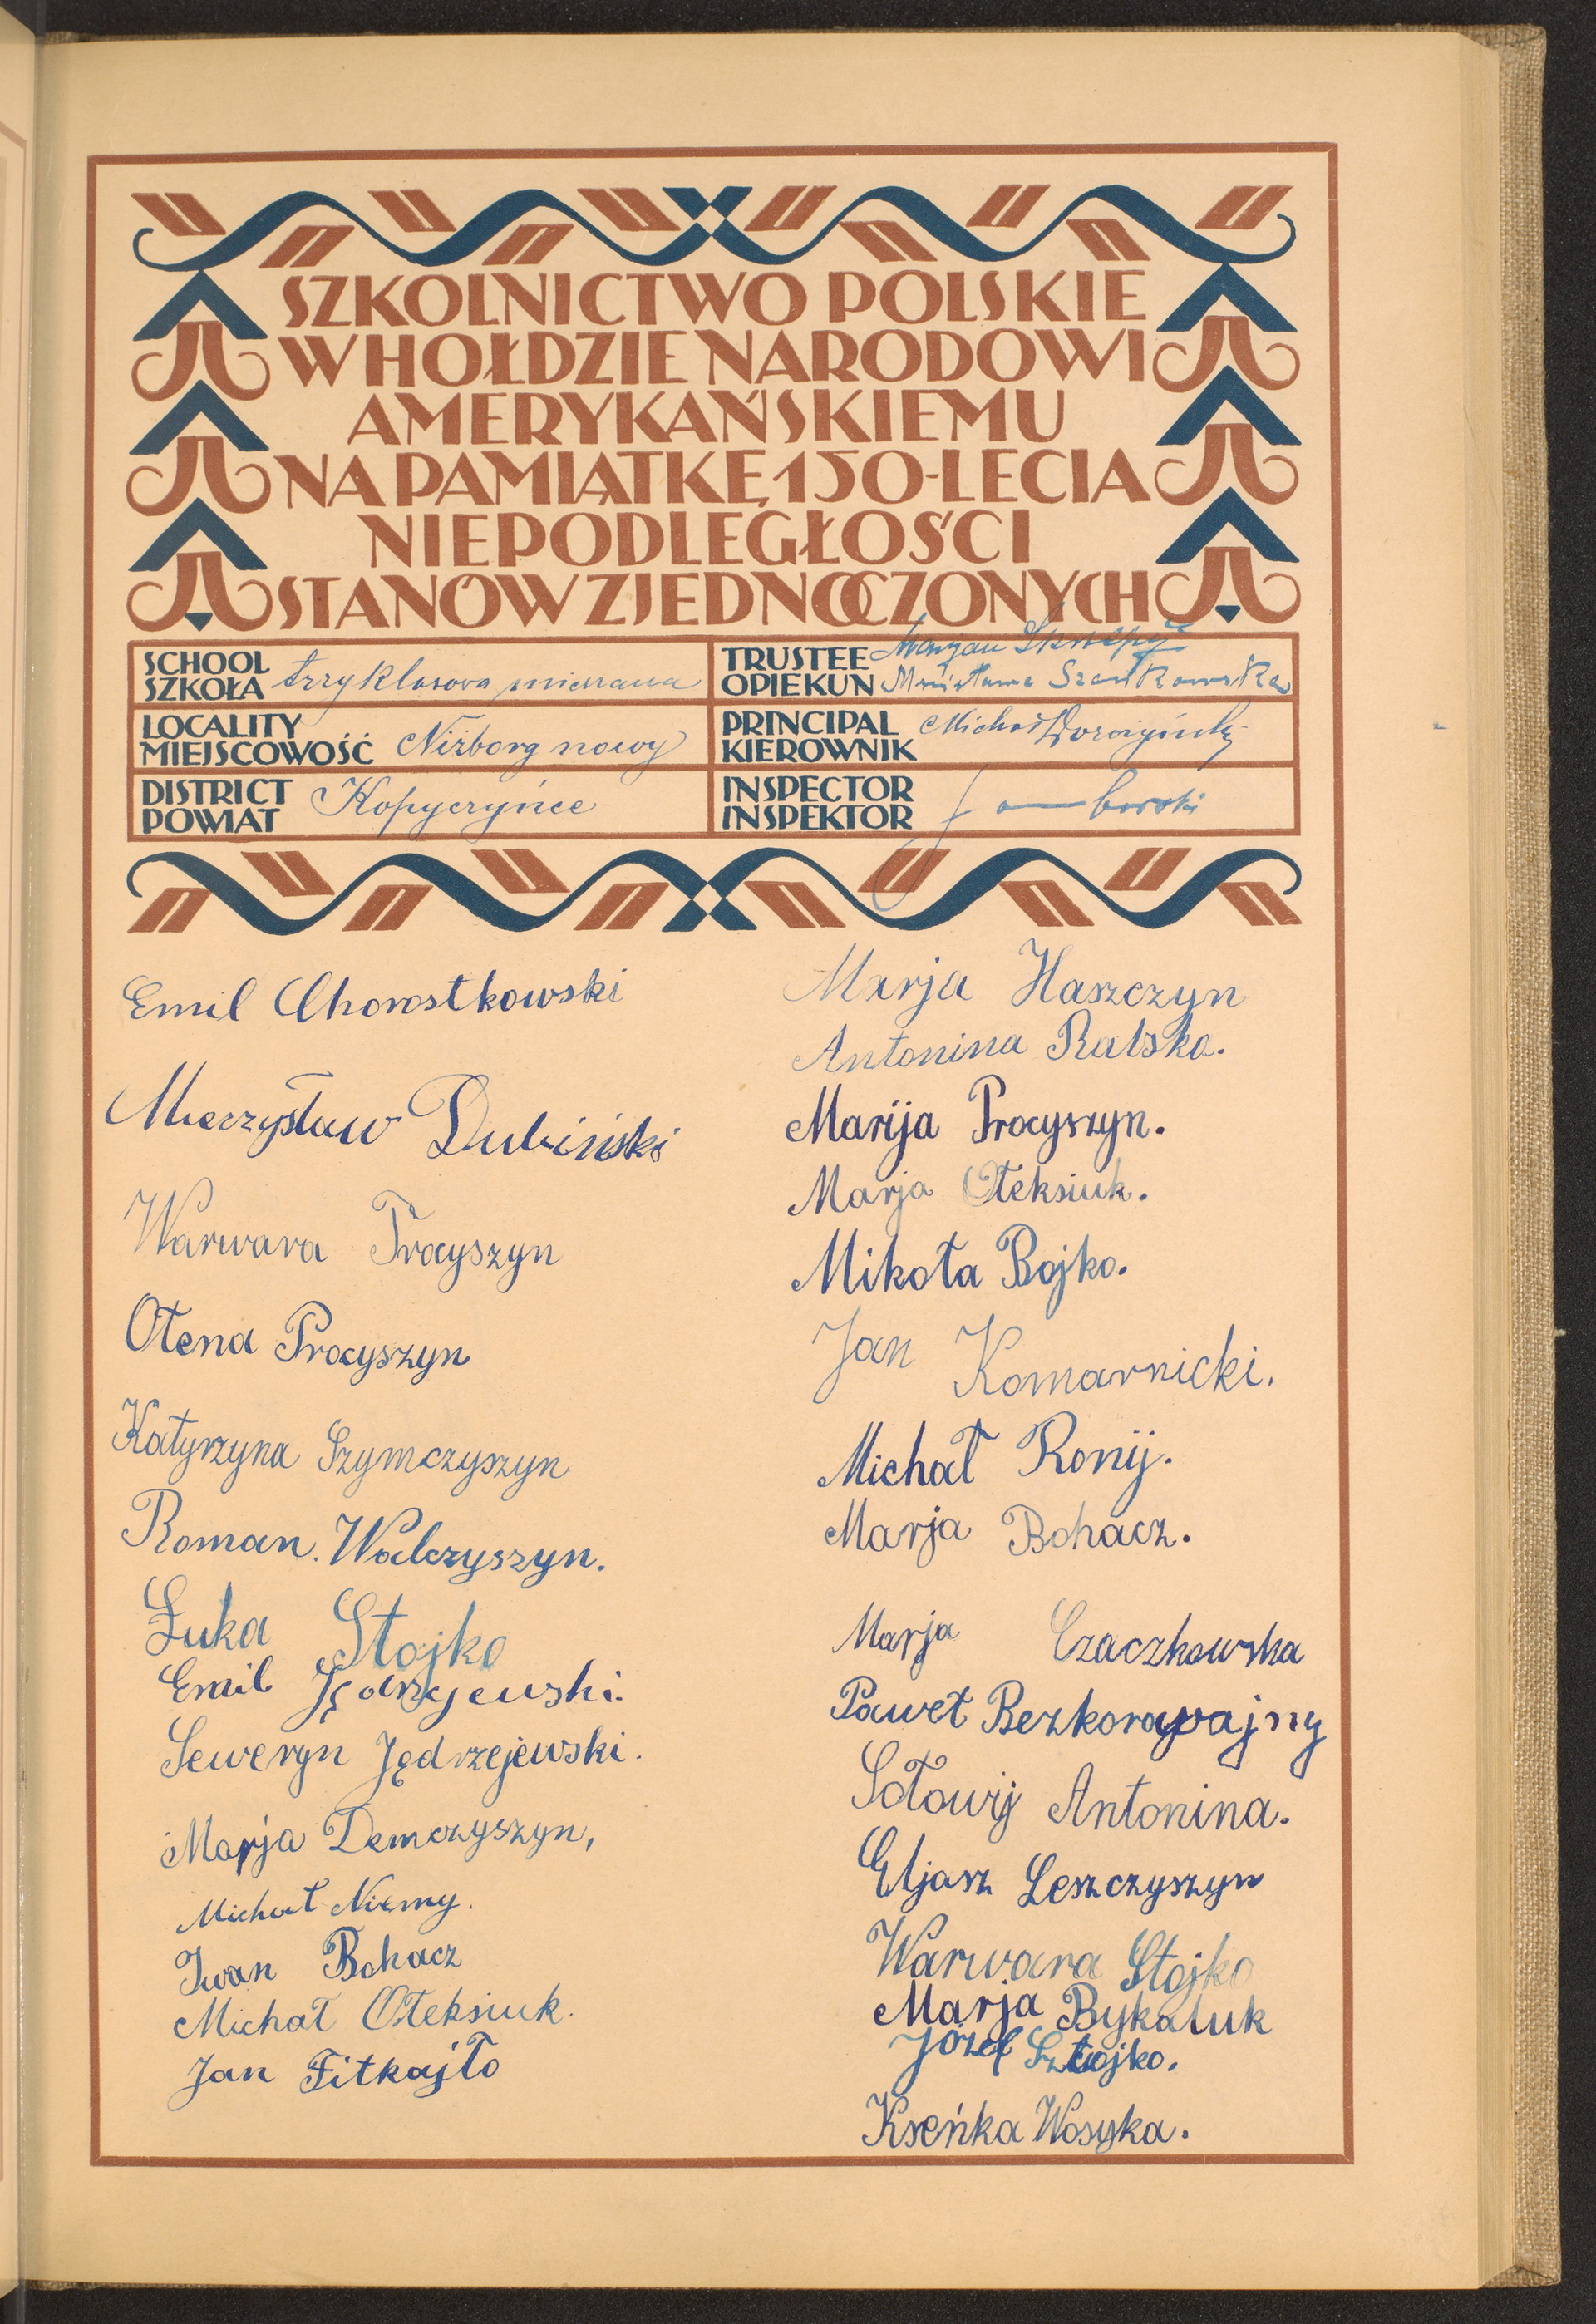 SZKOLNICTWO POLSKIE
W HOŁDZIE NARODOWI
AMERYKAŃSKIEMU
NA PAMIĄTKĘ 150-LECIA
NIEPODLEGŁOŚCI
STANÓW ZJEDNOCZONYCH
SCHOOL
SZKOŁA trzyklasova mieszana
LOCALITY
MIEJSCOWOŚĆ Niżborg nowy
DISTRICT
POWIAT Kopyczyńce
TRUSTEE Marjan
OPIEKUN Szankowska
PRINCIPAL
KIEROWNIK Michał
INSPECTOR
INSPEKTOR
Emil Chorostkowski
Mieczysław Dubiński
Warwara Procyszyn
Ołena Procyszyn
Katyrzyna Szymczyszyn
Roman. Walczyszyn.
Łuka Stojko
Emil Jędrzejewski.
Seweryn Jędrzejewski.
Marja Demczyszyn,
Michał Niemy.
Iwan Bohacz
Michał Ołeksiuk.
Jan Fitkajło
Marja Haszczyn
Antonina Ralska.
Marija Procyszyn.
Marja Ołeksiuk.
Mikoła Bojko.
Jan Komarnicki.
Michał Ronij.
Marja Bohacz.
Marja Czaczkowska
Paweł Bezkorowajny
Sołowij Antonina.
Eljasz Leszczyszyn
Warwara Stojko
Marja Bykaluk
Józef Sztojko.
Kseńka Wosyka.